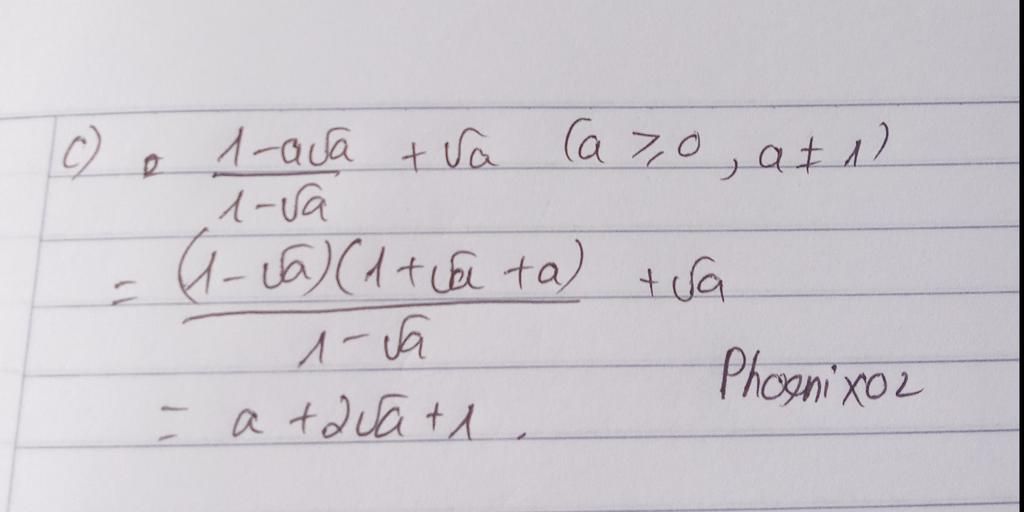 c) . 1-a√a / 1-√a + √a (a ⩾ 0, a ≠ 1)
= (1-√a)(1+√a+a) / 1-√a + √a
Phoenix02
= a+2√a+1.